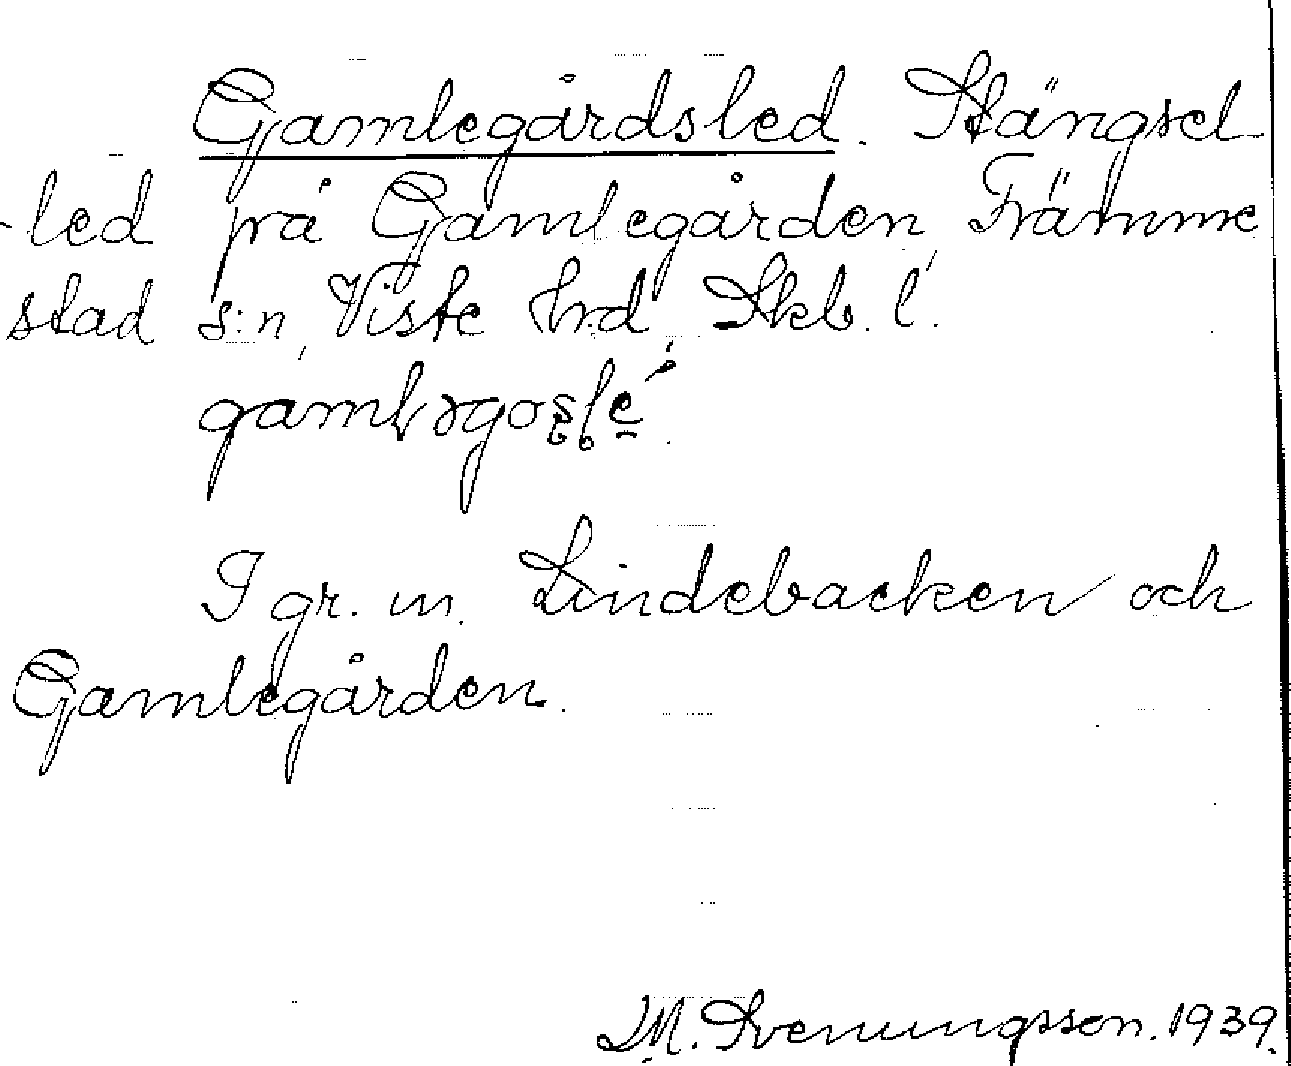 Gamlegårdsled. Stängsel
-led på Gamlegården, Främme
stad s:n, Viste hrd, Skb. l.
I gr. m. Lindebacken och
Gamlegården.
M. Svenungsson. 1939.